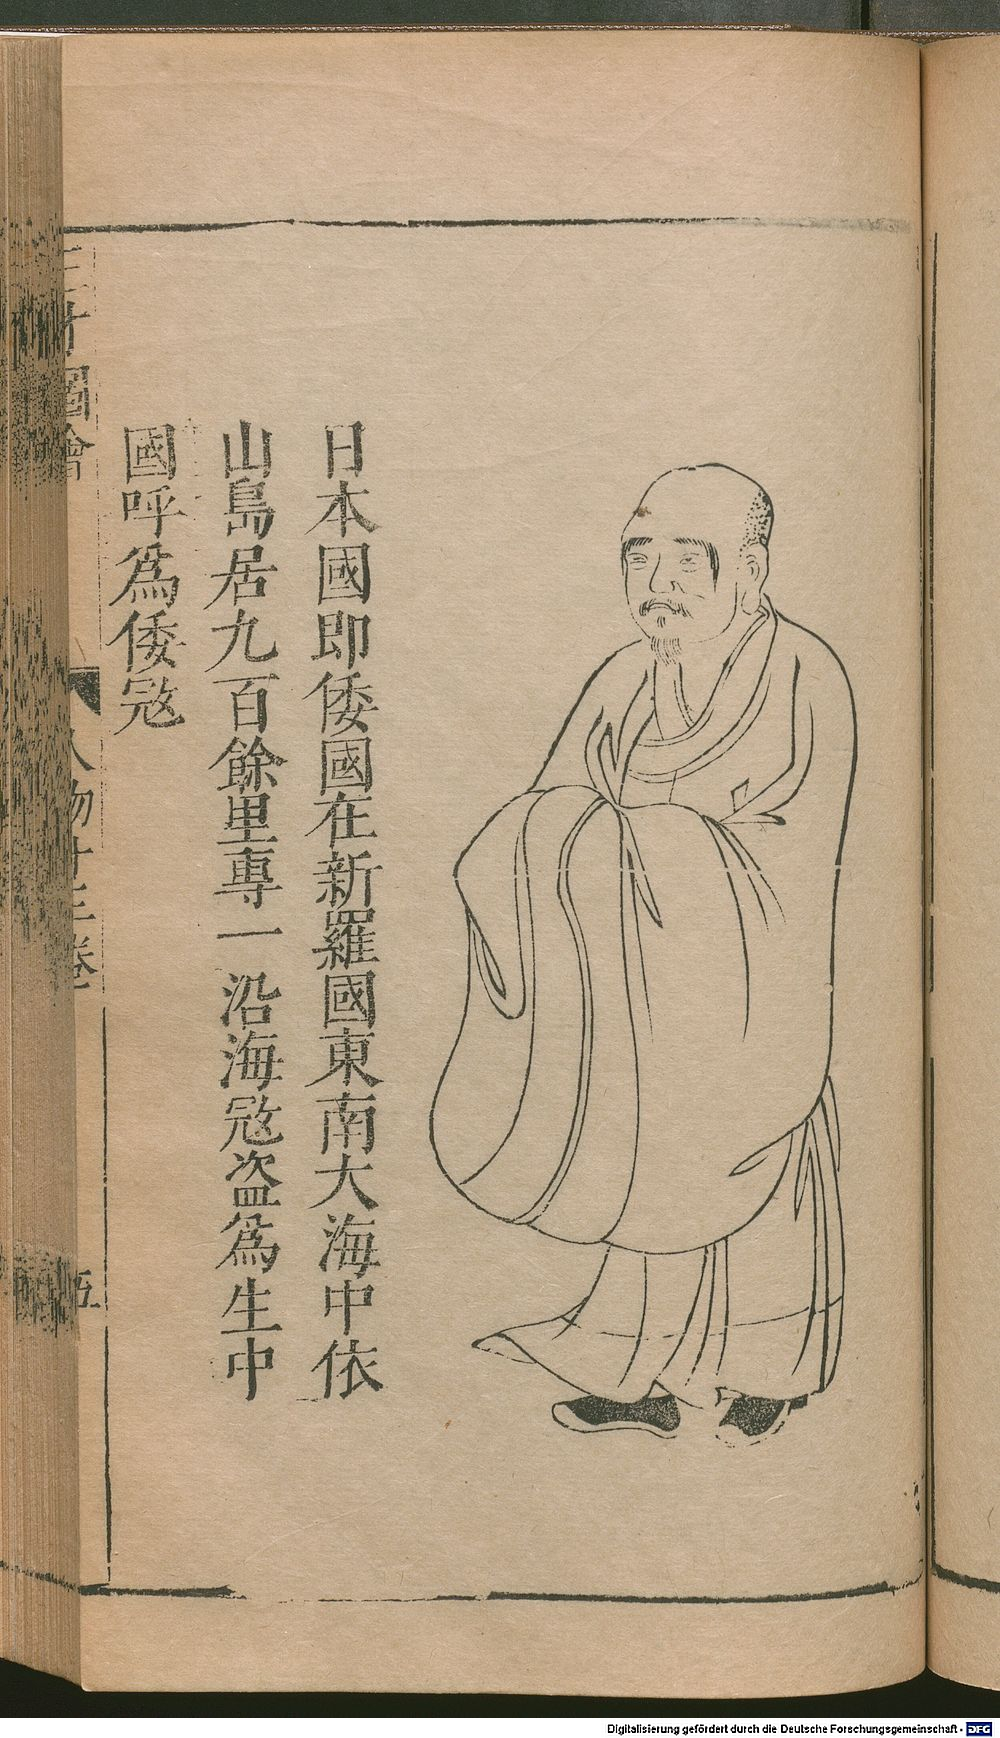 日本國即倭國在新羅國東南大海中依
山島居九百餘里專一沿海㓂盗爲生中
國呼爲倭㓂
三才圖會
人物十三卷
五
Digitalisierung gefördert durch die Deutsche Forschungsgemeinschaft - DFG